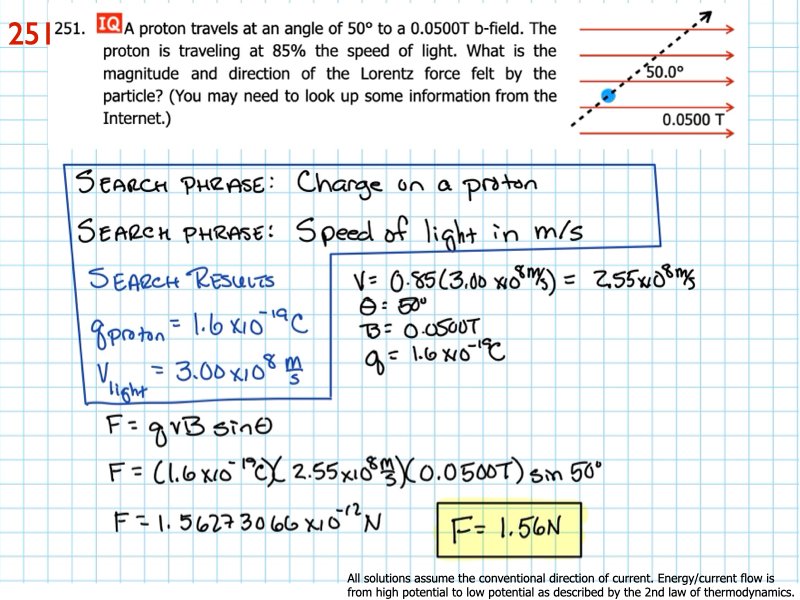 251
251. IQ A proton travels at an angle of 50° to a 0.0500T b-field. The
proton is traveling at 85% the speed of light. What is the
magnitude and direction of the Lorentz force felt by the
particle? (You may need to look up some information from the
Internet.)
50.0°
0.0500 T
SEARCH PHRASE: Charge on a proton
SEARCH PHRASE: Speed of light in m/s
SEARCH RESULTS
q proton = 1.6 x10⁻¹⁹C
V light = 3.00 x10⁸ m/s
V = 0.85(3.00 x10⁸ m/s) = 2.55x10⁸ m/s
θ = 50°
B = 0.0500T
q = 1.6 x10⁻¹⁹C
F = qvB sinθ
F = (1.6 x10⁻¹⁹C)(2.55x10⁸ m/s)(0.0500T) sin 50°
F = 1.56273066 x10⁻¹² N
F = 1.56N
All solutions assume the conventional direction of current. Energy/current flow is
from high potential to low potential as described by the 2nd law of thermodynamics.